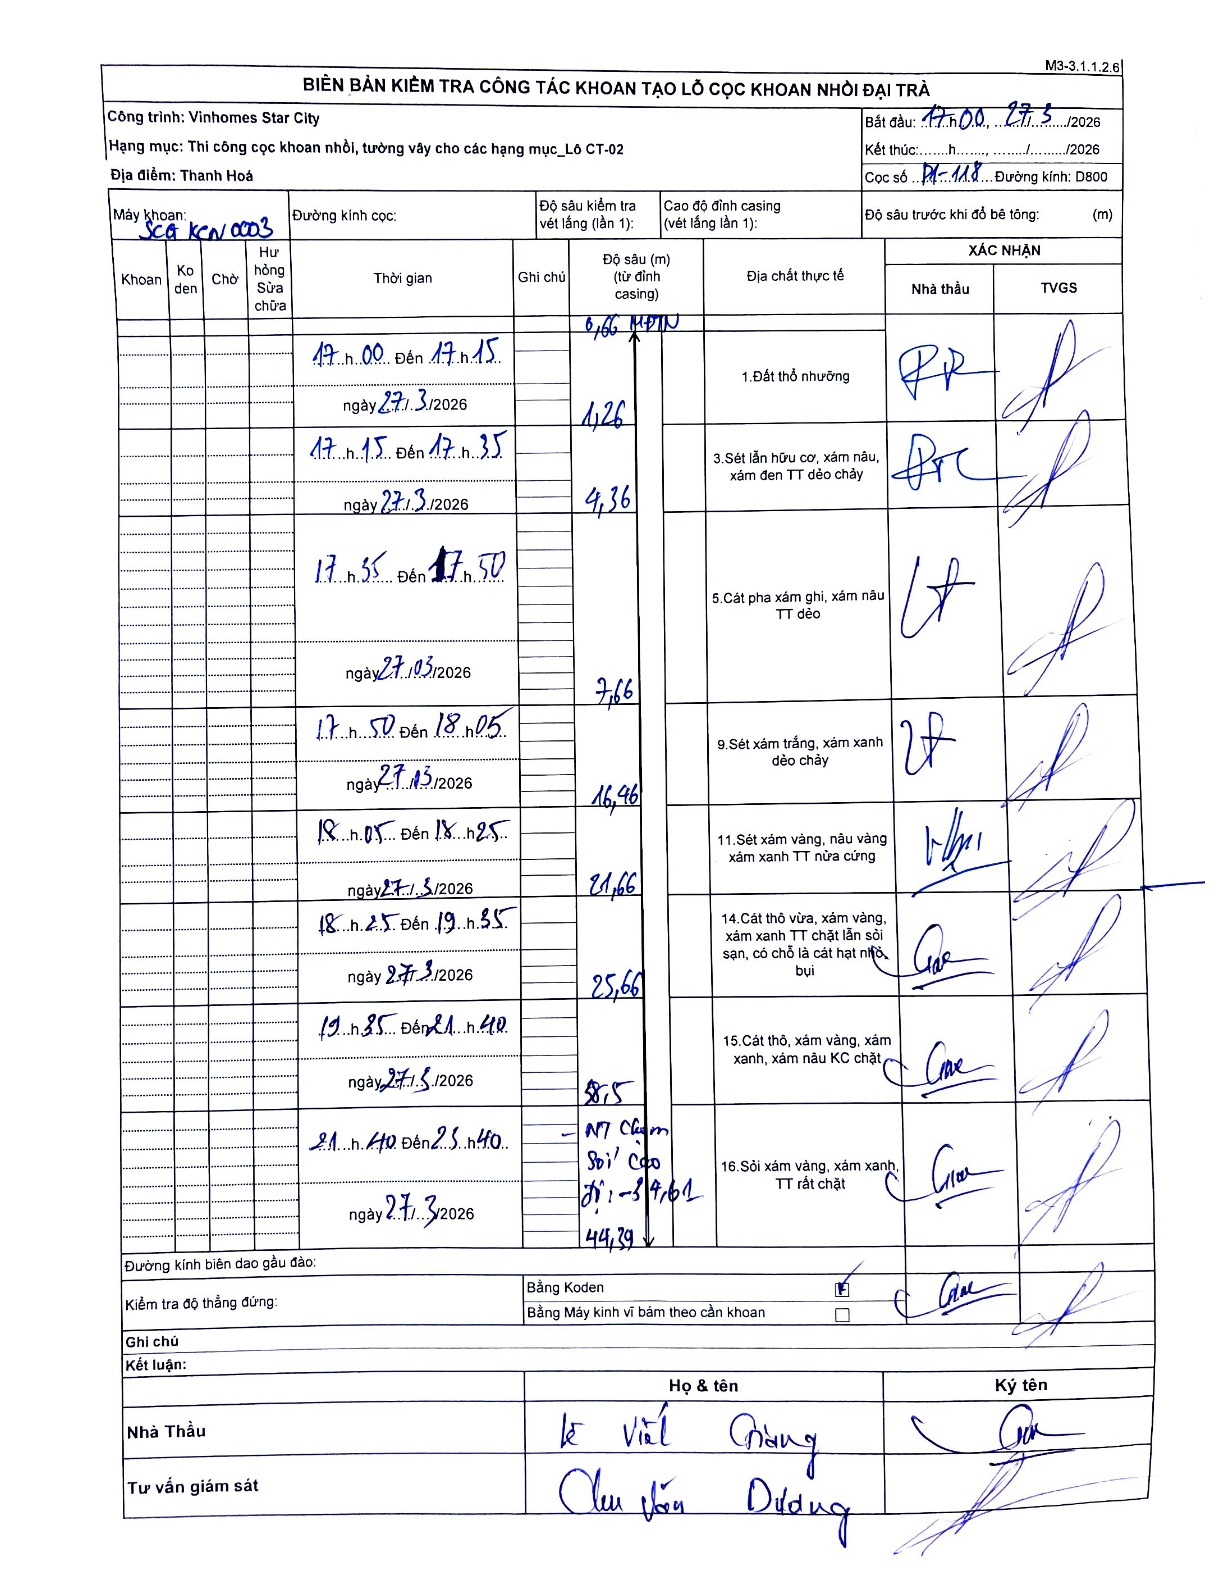 M3-3.1.1.2.6
BIÊN BẢN KIỂM TRA CÔNG TÁC KHOAN TẠO LỖ CỌC KHOAN NHỒI ĐẠI TRÀ
Công trình: Vinhomes Star City
Hạng mục: Thi công cọc khoan nhồi, tường vây cho các hạng mục_Lô CT-02
Địa điểm: Thanh Hoá
Bắt đầu: 17h00, 27/3/2026
Kết thúc:.......h......., ......../........./2026
Cọc số P1-118 Đường kính: D800
Máy khoan: SCG KCN 0003
Đường kính cọc:
Độ sâu kiểm tra vét lắng (lần 1):
Cao độ đỉnh casing (vét lắng lần 1):
Độ sâu trước khi đổ bê tông: (m)
Khoan
Ko den
Chờ
Hư hỏng Sửa chữa
Thời gian
Ghi chú
Độ sâu (m) (từ đỉnh casing)
Địa chất thực tế
XÁC NHẬN
Nhà thầu
TVGS
0,66 MĐTN
17h00 Đến 17h15
ngày 27/3/2026
1,26
1.Đất thổ nhưỡng
17h15 Đến 17h35
ngày 27/3/2026
4,36
3.Sét lẫn hữu cơ, xám nâu, xám đen TT dẻo chảy
17h35 Đến 17h50
ngày 27/03/2026
7,66
5.Cát pha xám ghi, xám nâu TT dẻo
17h50 Đến 18h05
ngày 27/03/2026
16,46
9.Sét xám trắng, xám xanh dẻo chảy
18h05 Đến 18h25
ngày 27/3/2026
21,66
11.Sét xám vàng, nâu vàng xám xanh TT nửa cứng
18h25 Đến 19h35
ngày 27/3/2026
25,66
14.Cát thô vừa, xám vàng, xám xanh TT chặt lẫn sỏi sạn, có chỗ là cát hạt nhỏ, bụi
19h35 Đến 21h40
ngày 27/3/2026
38,5
15.Cát thô, xám vàng, xám xanh, xám nâu KC chặt
21h40 Đến 23h40
ngày 27/3/2026
- NT Chạm
Sỏi cao
độ: -34,61
44,39
16.Sỏi xám vàng, xám xanh, TT rất chặt
Đường kính biên dao gầu đào:
Kiểm tra độ thẳng đứng:
Bằng Koden
Bằng Máy kinh vĩ bám theo cần khoan
Ghi chú
Kết luận:
Họ & tên
Ký tên
Nhà Thầu
Lê Viết Giàng
Tư vấn giám sát
Chu Văn Dương